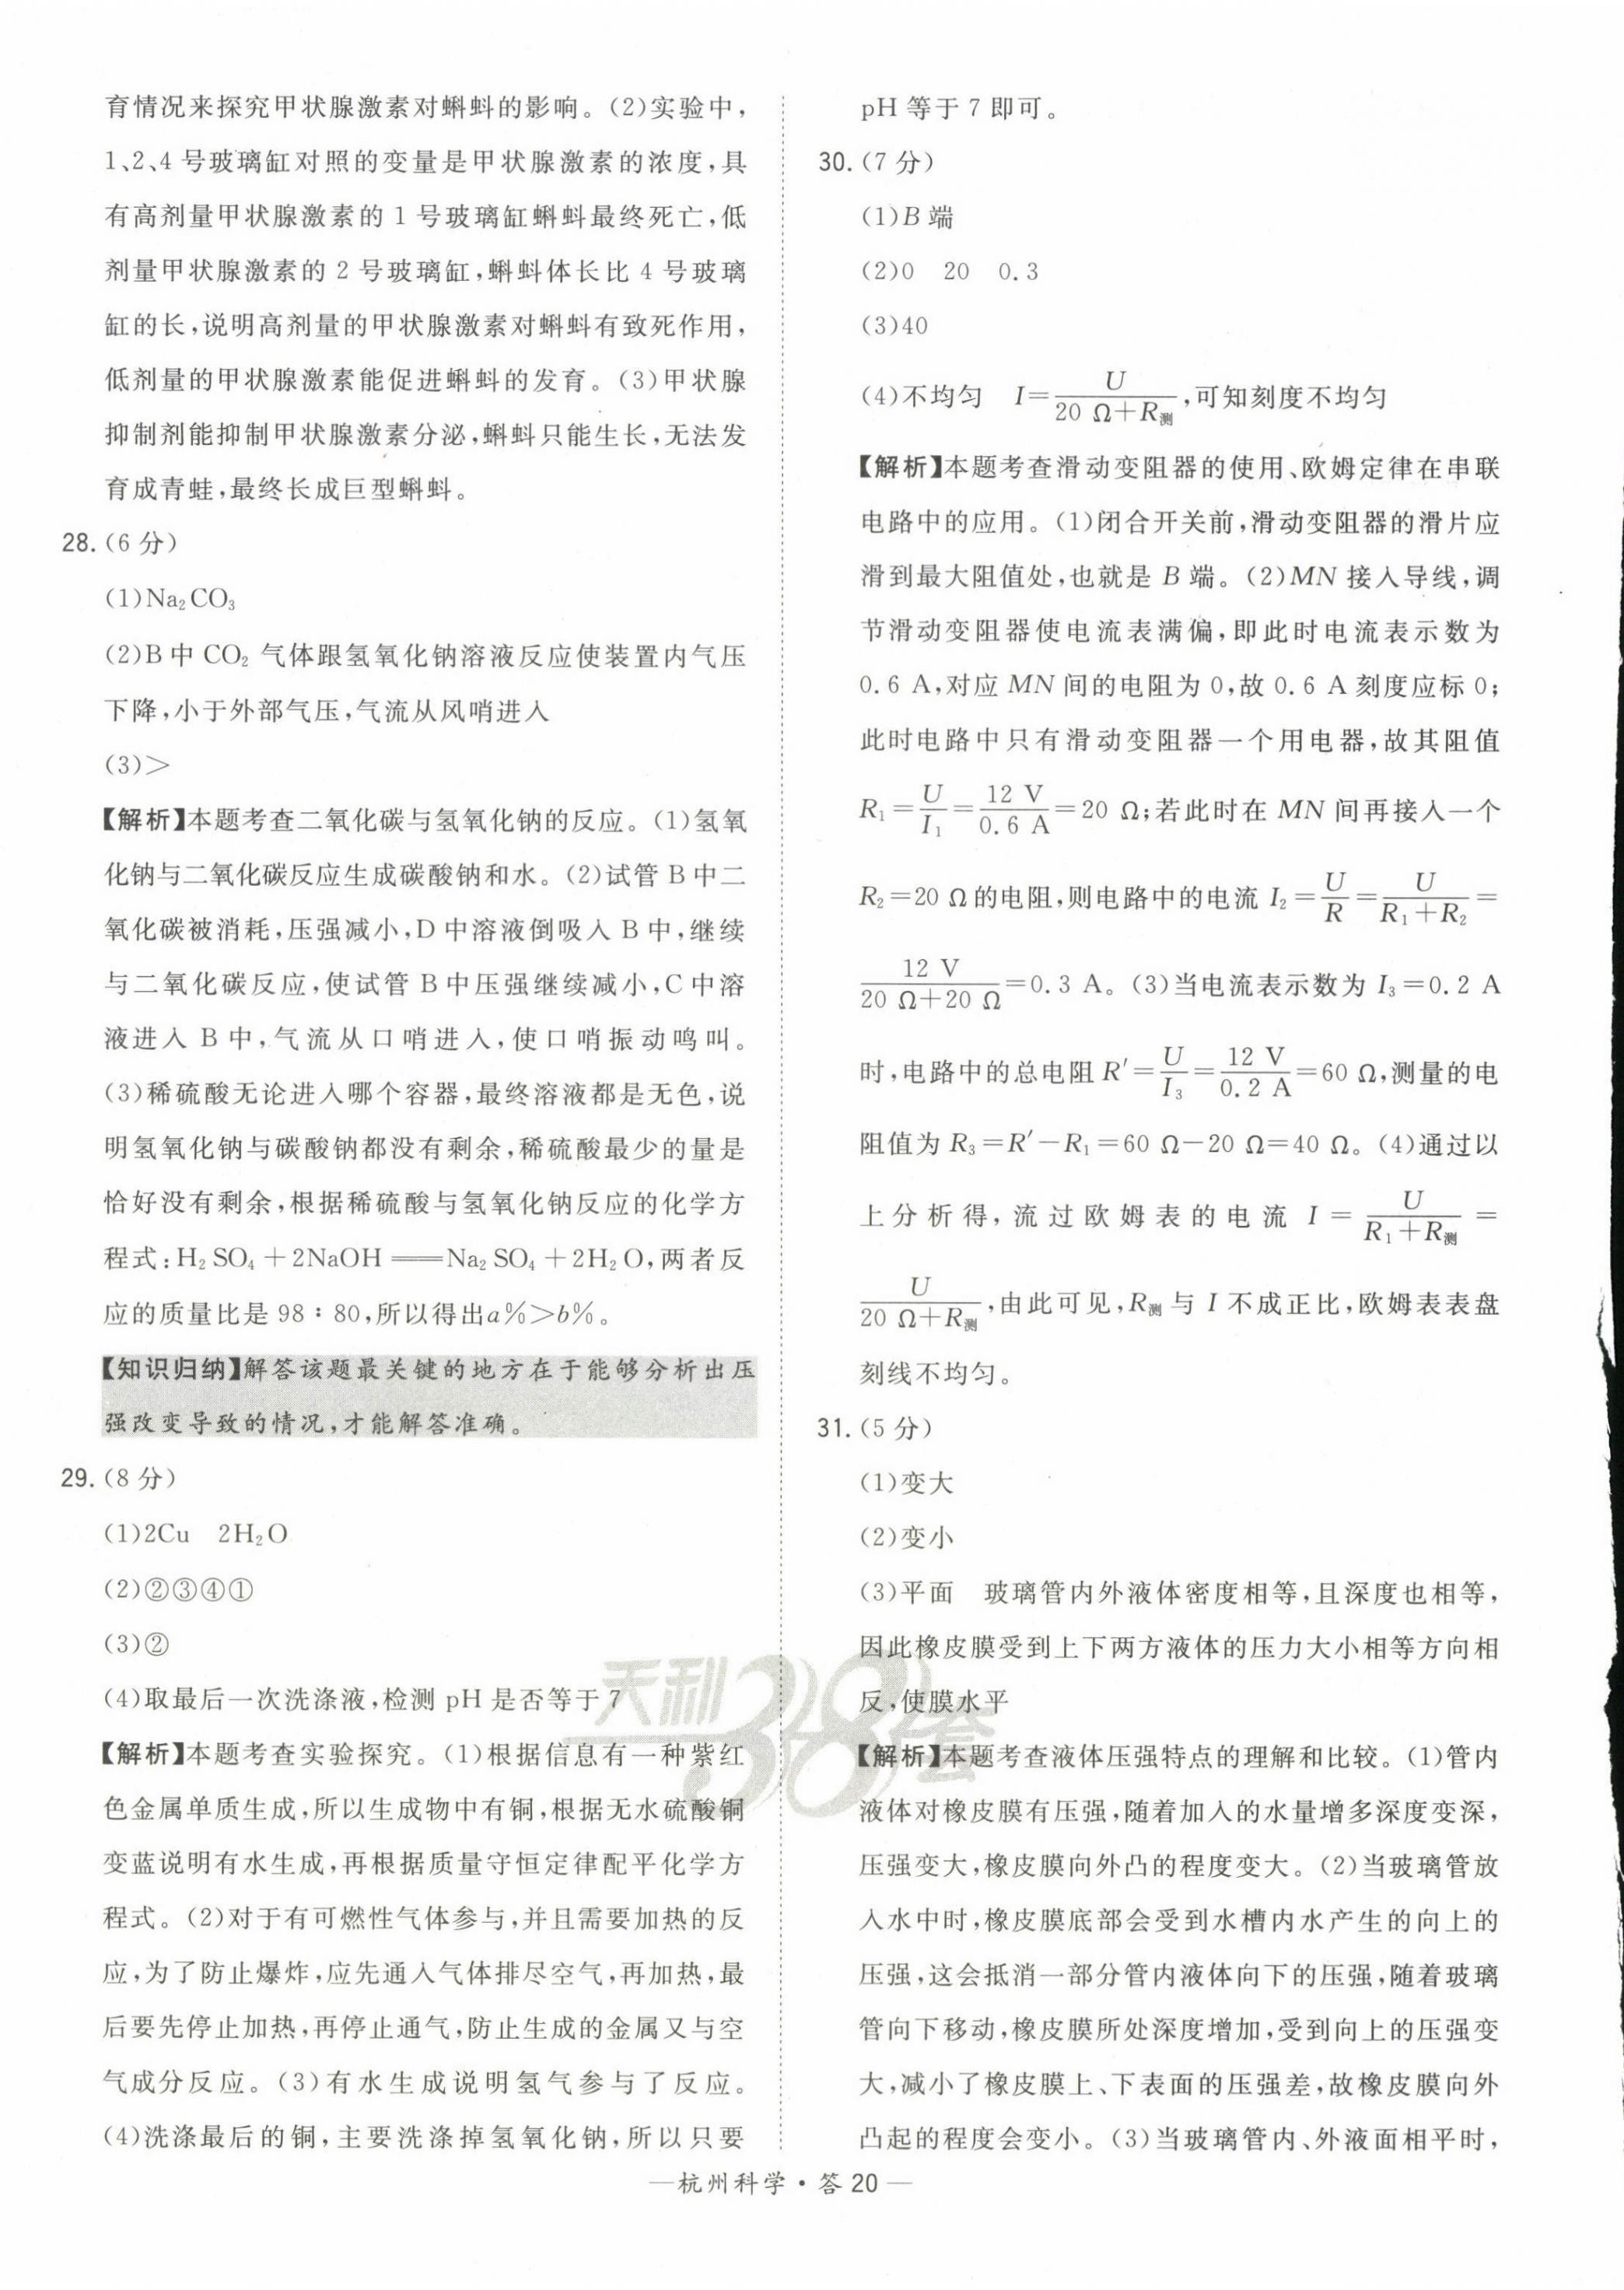 育情况来探究甲状腺激素对蝌蚪的影响。(2)实验中,
1、2、4 号玻璃缸对照的变量是甲状腺激素的浓度,具
有高剂量甲状腺激素的 1 号玻璃缸蝌蚪最终死亡,低
剂量甲状腺激素的 2 号玻璃缸,蝌蚪体长比 4 号玻璃
缸的长,说明高剂量的甲状腺激素对蝌蚪有致死作用,
低剂量的甲状腺激素能促进蝌蚪的发育。(3)甲状腺
抑制剂能抑制甲状腺激素分泌,蝌蚪只能生长,无法发
育成青蛙,最终长成巨型蝌蚪。
28. (6 分)
(1)Na₂CO₃
(2)B 中 CO₂ 气体跟氢氧化钠溶液反应使装置内气压
下降,小于外部气压,气流从风哨进入
(3)>
【解析】本题考查二氧化碳与氢氧化钠的反应。(1)氢氧
化钠与二氧化碳反应生成碳酸钠和水。(2)试管 B 中二
氧化碳被消耗,压强减小,D 中溶液倒吸入 B 中,继续
与二氧化碳反应,使试管 B 中压强继续减小,C 中溶
液进入 B 中,气流从口哨进入,使口哨振动鸣叫。
(3)稀硫酸无论进入哪个容器,最终溶液都是无色,说
明氢氧化钠与碳酸钠都没有剩余,稀硫酸最少的量是
恰好没有剩余,根据稀硫酸与氢氧化钠反应的化学方
程式:H₂SO₄+2NaOH══Na₂SO₄+2H₂O,两者反
应的质量比是 98∶80,所以得出a%>b%。
【知识归纳】解答该题最关键的地方在于能够分析出压
强改变导致的情况,才能解答准确。
29. (8 分)
(1)2Cu 2H₂O
(2)②③④①
(3)②
(4)取最后一次洗涤液,检测 pH 是否等于 7
【解析】本题考查实验探究。(1)根据信息有一种紫红
色金属单质生成,所以生成物中有铜,根据无水硫酸铜
变蓝说明有水生成,再根据质量守恒定律配平化学方
程式。(2)对于有可燃性气体参与,并且需要加热的反
应,为了防止爆炸,应先通入气体排尽空气,再加热,最
后要先停止加热,再停止通气,防止生成的金属又与空
气成分反应。(3)有水生成说明氢气参与了反应。
(4)洗涤最后的铜,主要洗涤掉氢氧化钠,所以只要
pH 等于 7 即可。
30. (7 分)
(1)B 端
(2)0 20 0.3
(3)40
(4)不均匀 I=U/(20 Ω+R测),可知刻度不均匀
【解析】本题考查滑动变阻器的使用、欧姆定律在串联
电路中的应用。(1)闭合开关前,滑动变阻器的滑片应
滑到最大阻值处,也就是 B 端。(2)MN 接入导线,调
节滑动变阻器使电流表满偏,即此时电流表示数为
0.6 A,对应 MN 间的电阻为 0,故 0.6 A 刻度应标 0;
此时电路中只有滑动变阻器一个用电器,故其阻值
R₁=U/I₁=12 V/0.6 A=20 Ω;若此时在 MN 间再接入一个
R₂=20 Ω 的电阻,则电路中的电流 I₂=U/R=U/(R₁+R₂)=
12 V/(20 Ω+20 Ω)=0.3 A。(3)当电流表示数为 I₃=0.2 A
时,电路中的总电阻 R′=U/I₃=12 V/0.2 A=60 Ω,测量的电
阻值为 R₃=R′-R₁=60 Ω-20 Ω=40 Ω。(4)通过以
上分析得,流过欧姆表的电流 I=U/(R₁+R测)=
U/(20 Ω+R测),由此可见,R测 与 I 不成正比,欧姆表表盘
刻线不均匀。
31. (5 分)
(1)变大
(2)变小
(3)平面 玻璃管内外液体密度相等,且深度也相等,
因此橡皮膜受到上下两方液体的压力大小相等方向相
反,使膜水平
【解析】本题考查液体压强特点的理解和比较。(1)管内
液体对橡皮膜有压强,随着加入的水量增多深度变深,
压强变大,橡皮膜向外凸的程度变大。(2)当玻璃管放
入水中时,橡皮膜底部会受到水槽内水产生的向上的
压强,这会抵消一部分管内液体向下的压强,随着玻璃
管向下移动,橡皮膜所处深度增加,受到向上的压强变
大,减小了橡皮膜上、下表面的压强差,故橡皮膜向外
凸起的程度会变小。(3)当玻璃管内、外液面相平时,
天利38套
—杭州科学·答 20 —